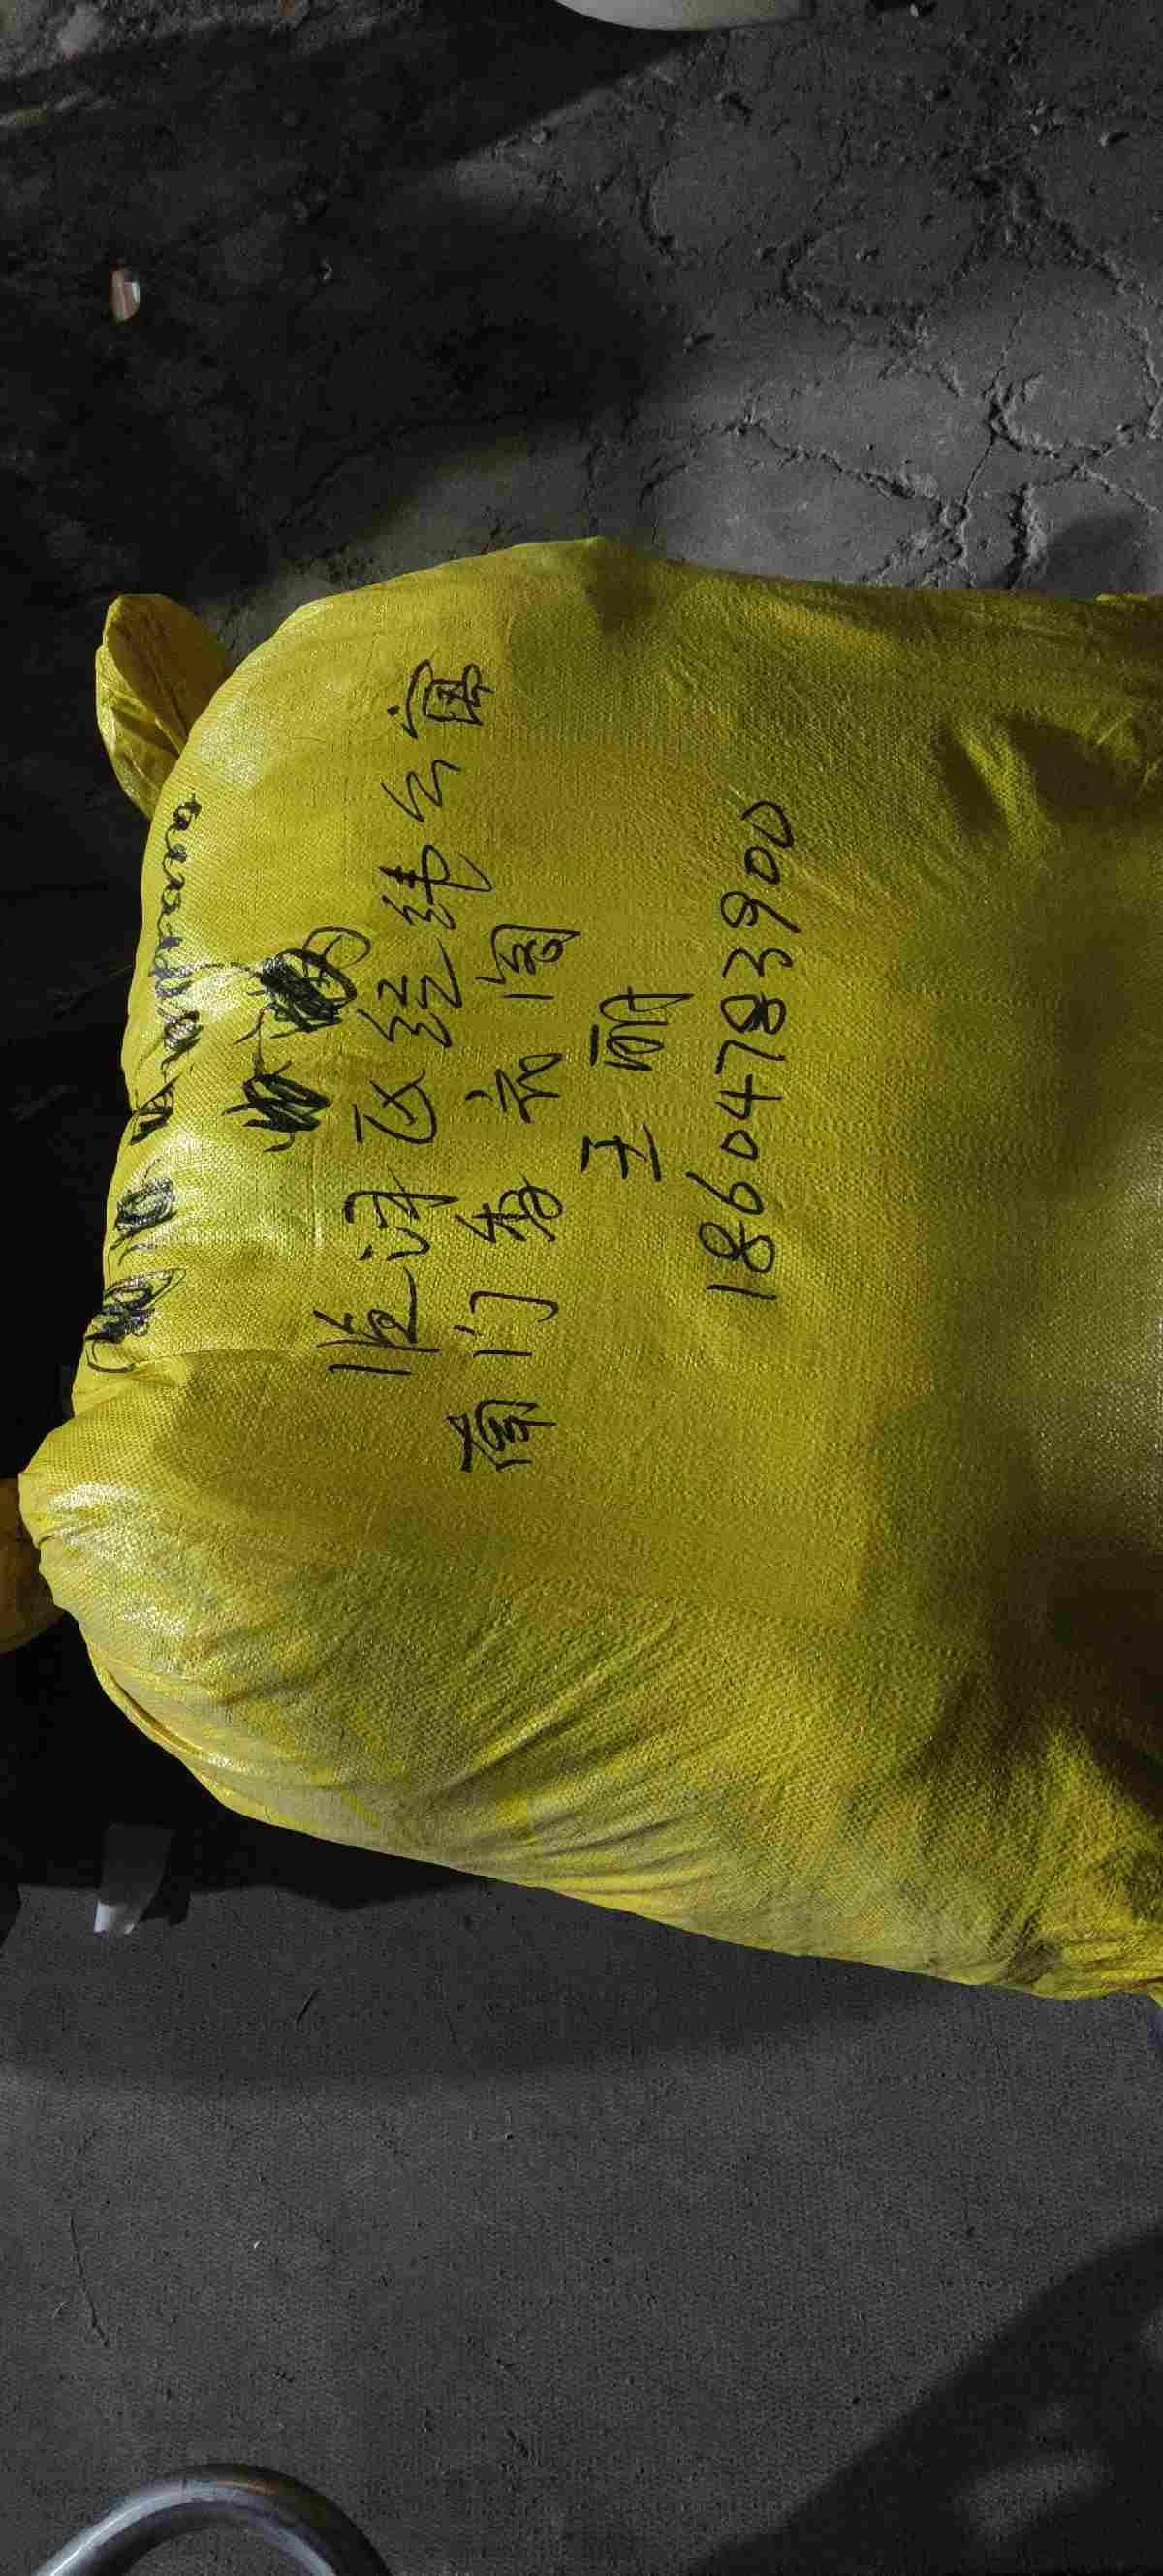 临河区经纬公寓
南门务六阁
王丽
18604783900